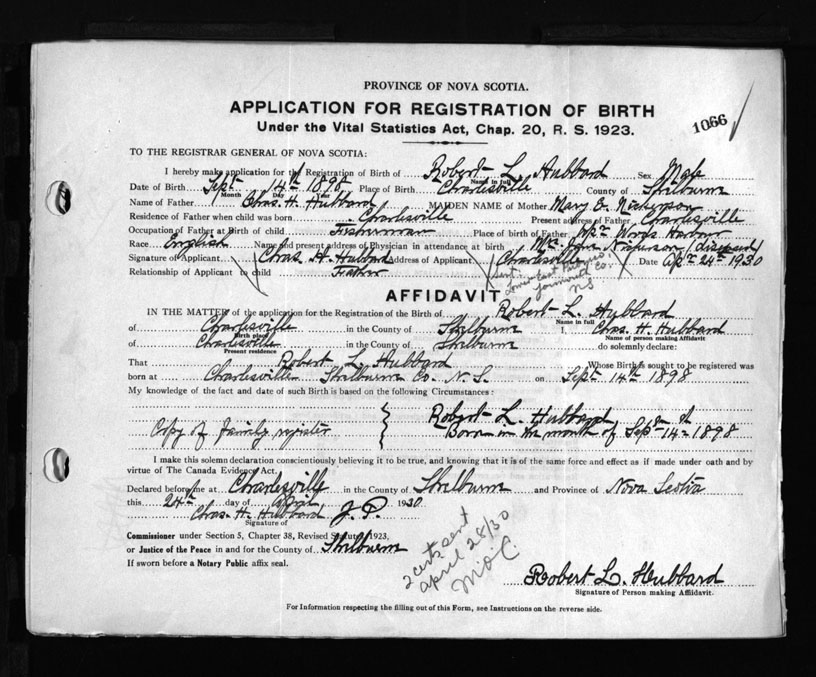 PROVINCE OF NOVA SCOTIA.
APPLICATION FOR REGISTRATION OF BIRTH
1066
Under the Vital Statistics Act, Chap. 20, R. S. 1923.
TO THE REGISTRAR GENERAL OF NOVA SCOTIA:
I hereby make application for the Registration of Birth of Robert L. Hubbard Sex Male
Name in full
Date of Birth Sept 14th 1898 Place of Birth Charlesville County of Shelburne
Month Day Year
Name of Father Chas. H. Hubbard MAIDEN NAME of Mother Mary E. Nickerson
Residence of Father when child was born Charlesville Present address of Father Charlesville
Occupation of Father at Birth of child Fisherman Place of birth of Father Woods Harbour
Race English Name and present address of Physician in attendance at birth Mrs. Jane Nickerson
Signature of Applicant Chas. H. Hubbard Address of Applicant Charlesville Date Apr 24th 1930
Relationship of Applicant to child Father
sent. Lower East Pubnico, Yarmouth Co. NS
AFFIDAVIT
IN THE MATTER of the application for the Registration of the Birth of Robert L. Hubbard
Name in full
of Charlesville in the County of Shelburne I, Chas. H. Hubbard
Birth place Name of person making Affidavit
of Charlesville in the County of Shelburne do solemnly declare:
Present residence
That Robert L. Hubbard Whose Birth is sought to be registered was
born at Charlesville Shelburne Co. N. S. on Sept 14th 1898
My knowledge of the fact and date of such Birth is based on the following Circumstances:
Robert L. Hubbard
Copy of family register Born in the month of Sept 14th 1898
I make this solemn declaration conscientiously believing it to be true, and knowing that it is of the same force and effect as if made under oath and by
virtue of The Canada Evidence Act.
Declared before me at Charlesville in the County of Shelburne and Province of Nova Scotia
this 24th day of April 1930.
Chas. H. Hubbard J. P.
Signature of
Commissioner under Section 5, Chapter 38, Revised Statutes 1923,
or Justice of the Peace in and for the County of Shelburne
If sworn before a Notary Public affix seal.
2 certs sent
april 28/30
Robert L. Hubbard
Signature of Person making Affidavit.
For Information respecting the filling out of this Form, see Instructions on the reverse side.